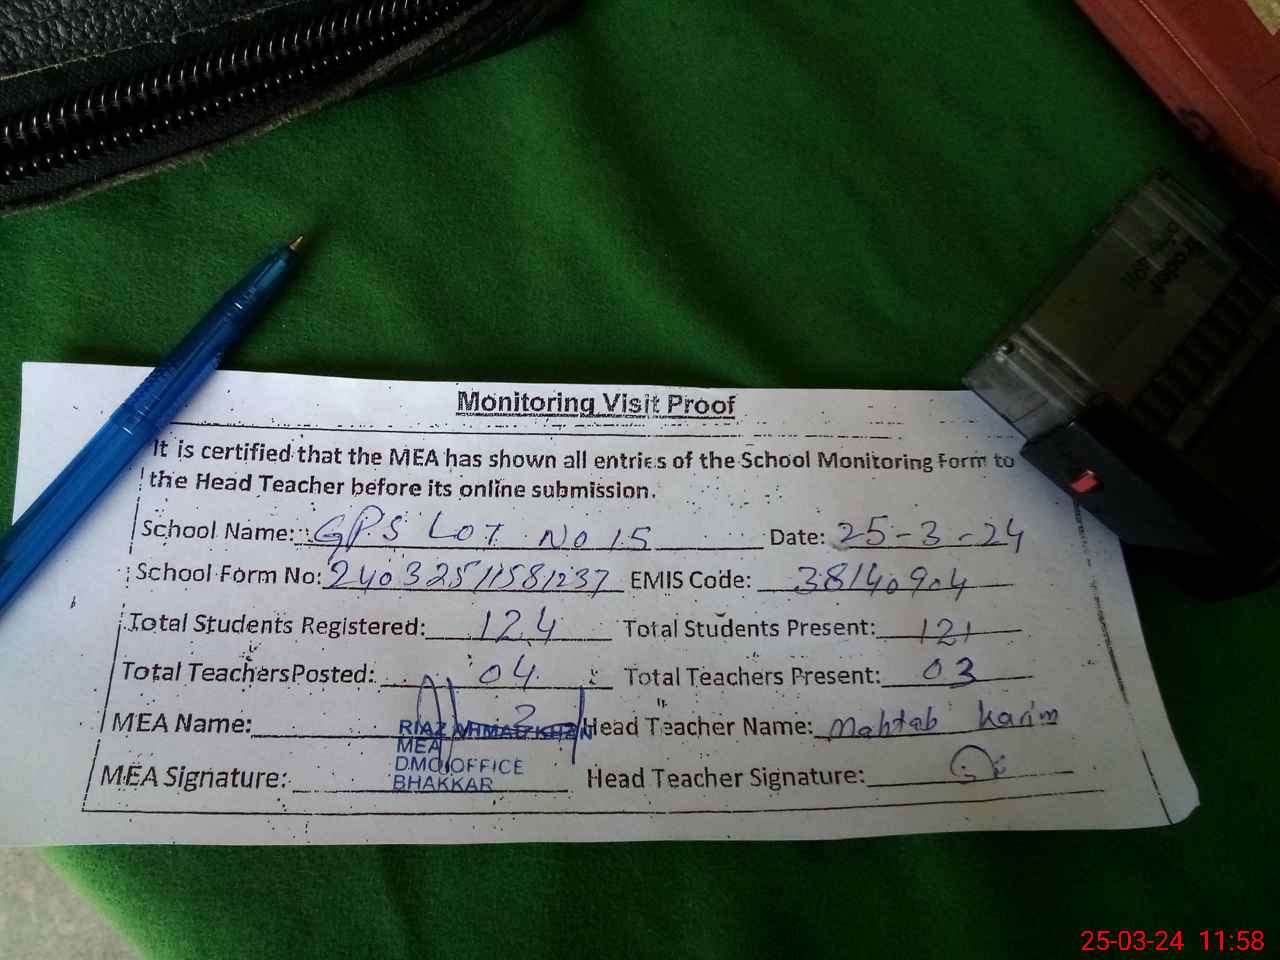 Monitoring Visit Proof
It is certified that the MEA has shown all entries of the School Monitoring Form to
the Head Teacher before its online submission.
School Name: GPS Lot No 15 Date: 25-3-24
School Form No: 24032511581237 EMIS Code: 38140904
Total Students Registered: 124 Total Students Present: 121
Total TeachersPosted: 04 Total Teachers Present: 03
MEA Name: RIAZ AHMAD KHAN Head Teacher Name: Mahtab Karim
MEA
DMO OFFICE
MEA Signature: BHAKKAR Head Teacher Signature:
25-03-24 11:58